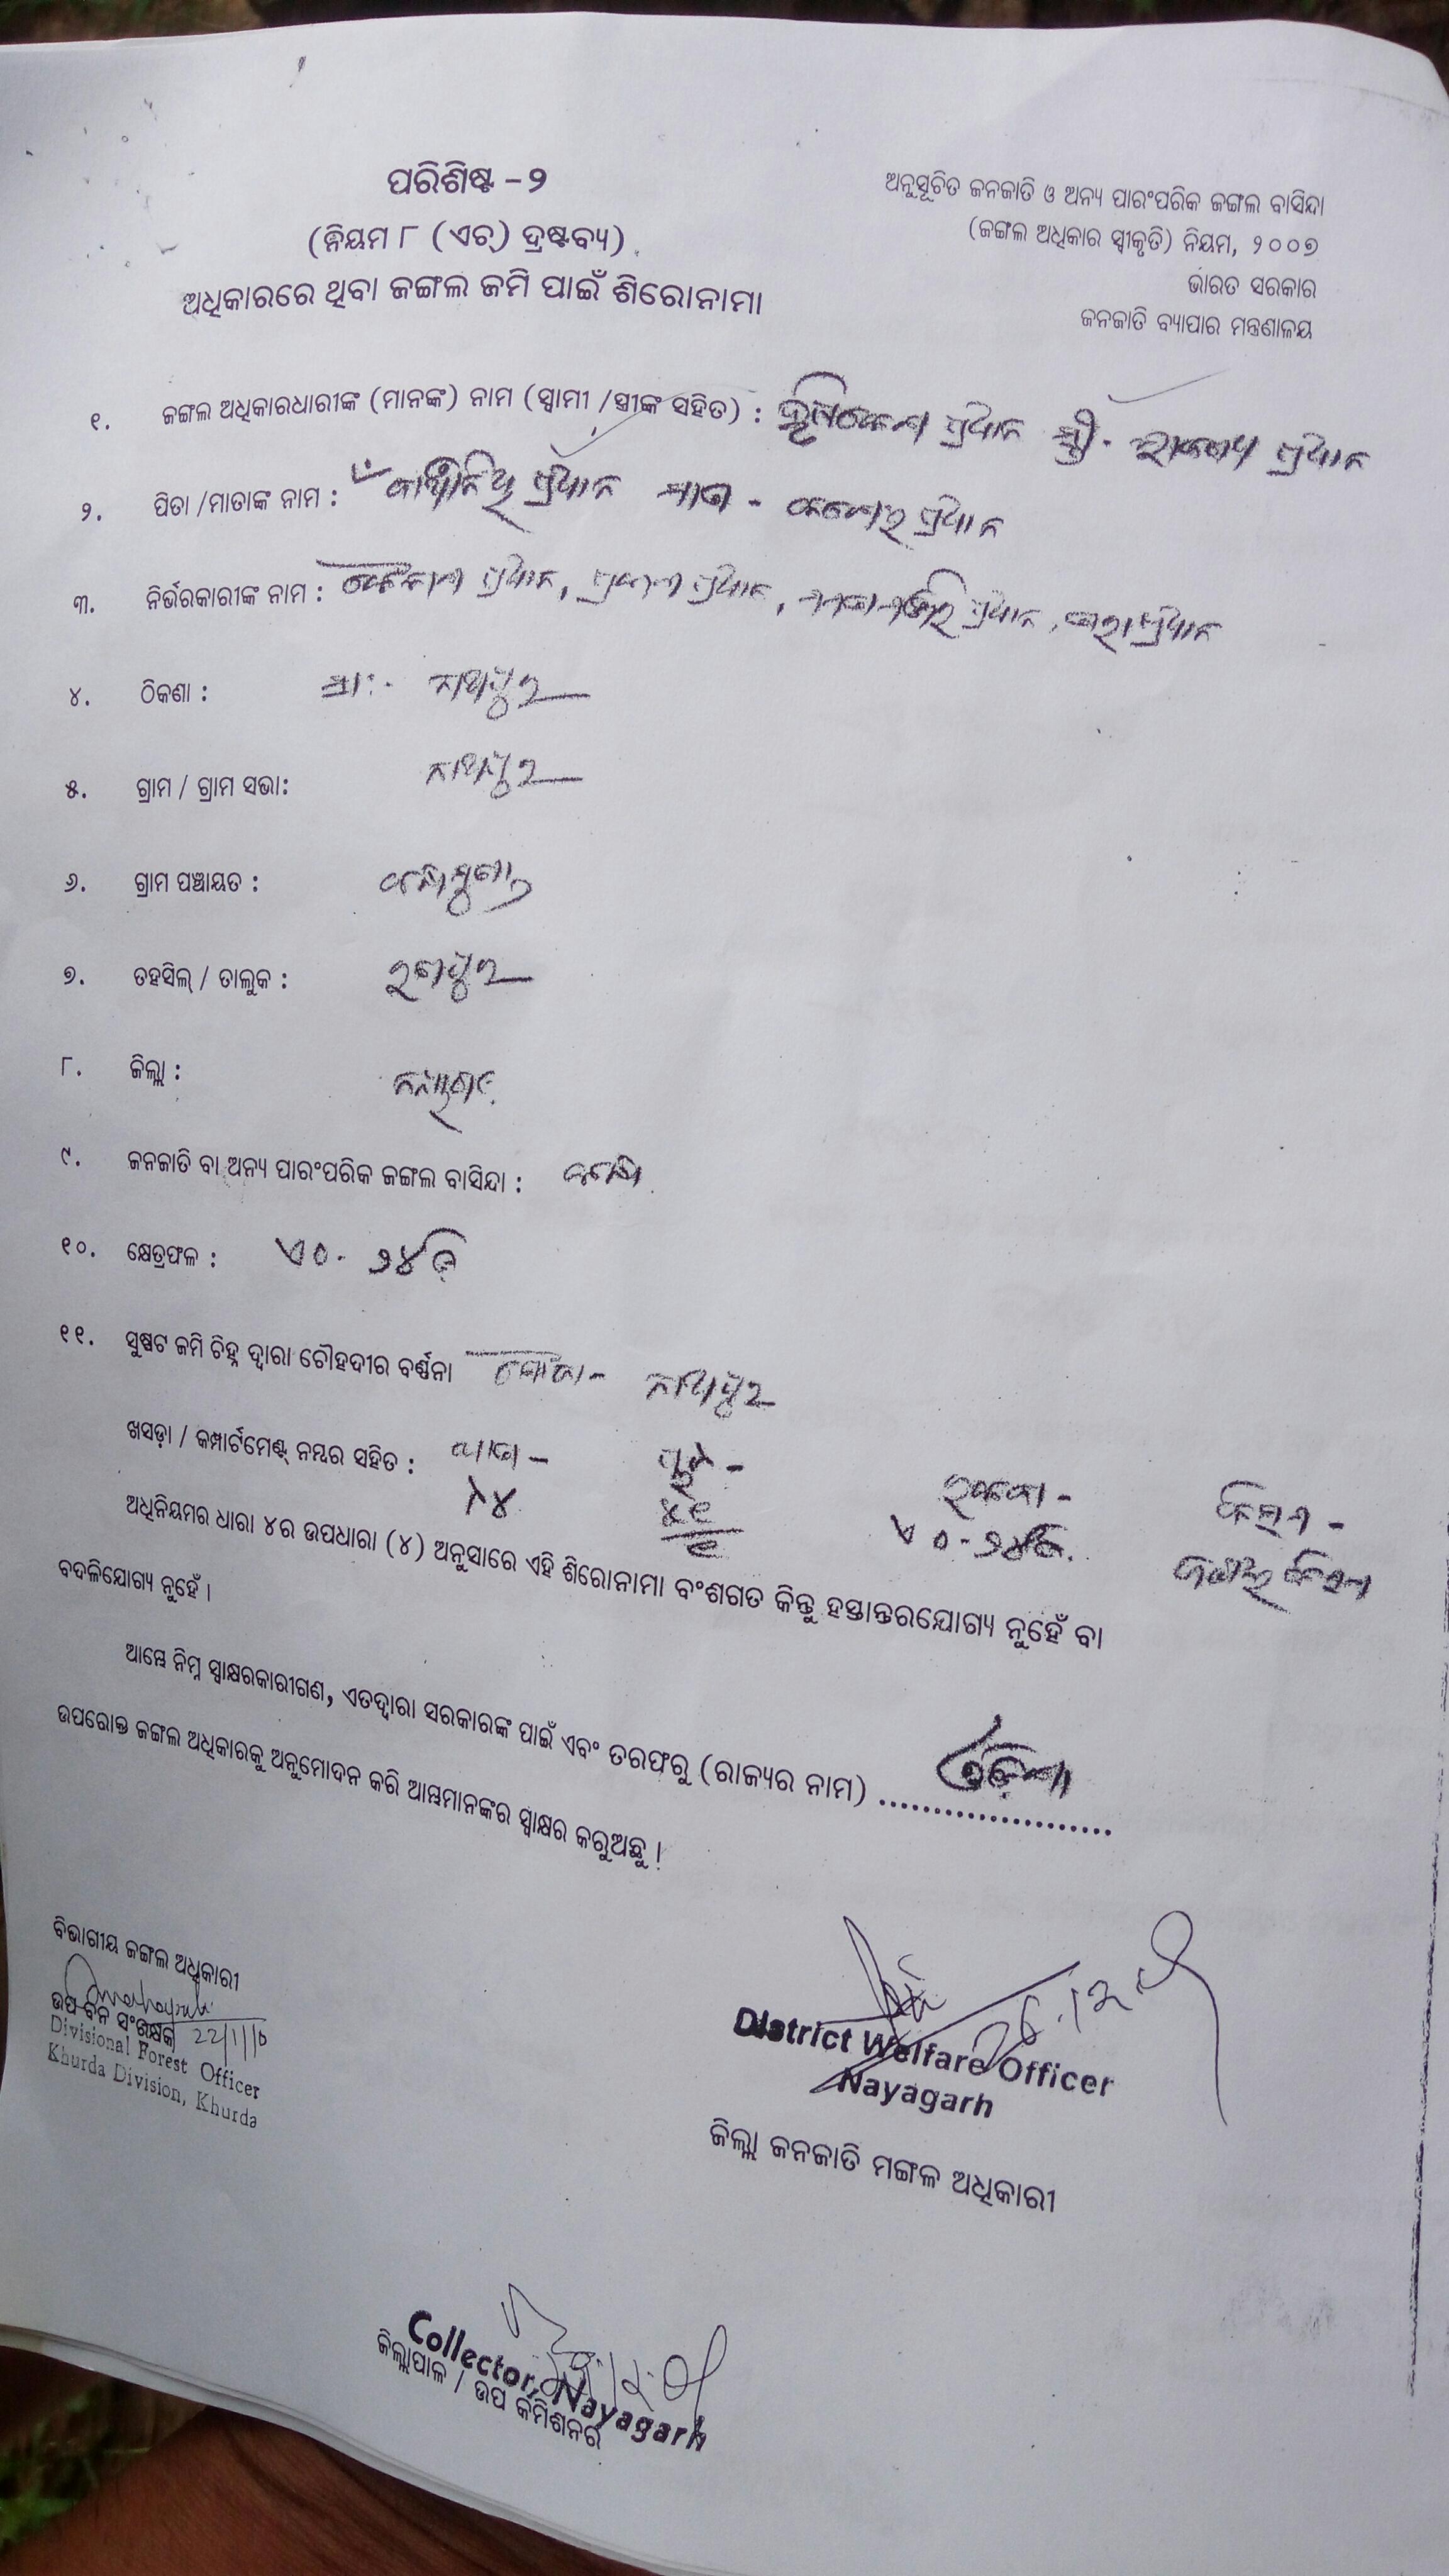 ପରିଶିଷ୍ଟ -୨
(ନିୟମ ୮ (ଏଚ୍) ଦ୍ରଷ୍ଟବ୍ୟ)
ଅଧିକାରରେ ଥିବା ଜଙ୍ଗଲ ଜମି ପାଇଁ ଶିରୋନାମା
ଅନୁସୂଚିତ ଜନଜାତି ଓ ଅନ୍ୟ ପାରଂପରିକ ଜଙ୍ଗଲ ବାସିନ୍ଦା
(ଜଙ୍ଗଲ ଅଧିକାର ସ୍ୱୀକୃତି) ନିୟମ, ୨୦୦୭
ଭାରତ ସରକାର
ଜନଜାତି ବ୍ୟାପାର ମନ୍ତ୍ରଣାଳୟ
୧. ଜଙ୍ଗଲ ଅଧିକାରଧାରୀଙ୍କ (ମାନଙ୍କ) ନାମ (ସ୍ୱାମୀ /ସ୍ତ୍ରୀଙ୍କ ସହିତ) : ପ୍ରଧାନ ସ୍ତ୍ରୀ- ପ୍ରଧାନ
୨. ପିତା /ମାତାଙ୍କ ନାମ : ପ୍ରଧାନ ମାତା - ପ୍ରଧାନ
୩. ନିର୍ଭରକାରୀଙ୍କ ନାମ : ପ୍ରଧାନ, ପ୍ରଧାନ, ପ୍ରଧାନ, ପ୍ରଧାନ
୪. ଠିକଣା : ଗ୍ରା:- ନାଥପୁର
୫. ଗ୍ରାମ / ଗ୍ରାମ ସଭା: ନାଥପୁର
୬. ଗ୍ରାମ ପଞ୍ଚାୟତ :
୭. ତହସିଲ୍ / ତାଲୁକ : ରଣପୁର
୮. ଜିଲ୍ଲା : ନୟାଗଡ
୯. ଜନଜାତି ବା ଅନ୍ୟ ପାରଂପରିକ ଜଙ୍ଗଲ ବାସିନ୍ଦା : କନ୍ଧ
୧୦. କ୍ଷେତ୍ରଫଳ : ଏ ୦- ୨୪ ଡି
୧୧. ସୁଷ୍ପଟ ଜମି ଚିହ୍ନ ଦ୍ୱାରା ଚୌହଦୀର ବର୍ଣ୍ଣନା ମୌଜା- ନାଥପୁର
ଖସଡ଼ା / କମ୍ପାର୍ଟମେଣ୍ଟ୍ ନମ୍ବର ସହିତ : ଖାତା - ପ୍ଲଟ - ରକବା - କିସମ -
୨୪ ଏ ୦-୨୪ଡି. ଜଙ୍ଗଲ କିସମ
ଅଧିନିୟମର ଧାରା ୪ର ଉପଧାରା (୪) ଅନୁସାରେ ଏହି ଶିରୋନାମା ବଂଶଗତ କିନ୍ତୁ ହସ୍ତାନ୍ତରଯୋଗ୍ୟ ନୁହେଁ ବା
ବଦଳିଯୋଗ୍ୟ ନୁହେଁ ।
ଆମ୍ଭେ ନିମ୍ନ ସ୍ୱାକ୍ଷରକାରୀଗଣ, ଏତଦ୍ୱାରା ସରକାରଙ୍କ ପାଇଁ ଏବଂ ତରଫରୁ (ରାଜ୍ୟର ନାମ) ..................... ଓଡିଶା
ଉପରୋକ୍ତ ଜଙ୍ଗଲ ଅଧିକାରକୁ ଅନୁମୋଦନ କରି ଆମ୍ଭମାନଙ୍କର ସ୍ୱାକ୍ଷର କରୁଅଛୁ ।
ବିଭାଗୀୟ ଜଙ୍ଗଲ ଅଧିକାରୀ
ଉପ ବନ ସଂରକ୍ଷକ 22/1/10
Divisional Forest Officer
Khurda Division, Khurda
District Welfare Officer
Nayagarh
ଜିଲ୍ଲା ଜନଜାତି ମଙ୍ଗଳ ଅଧିକାରୀ
Collector, Nayagarh
ଜିଲ୍ଲାପାଳ / ଉପ କମିଶନର